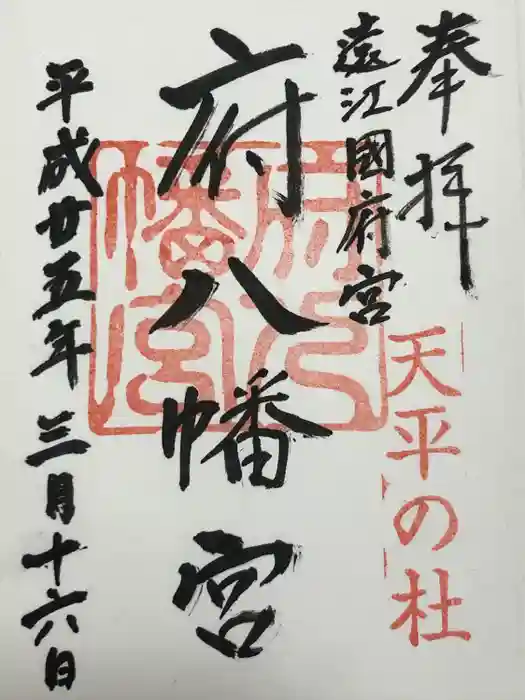 奉拝
天平の杜
遠江國府宮
府八幡宮
府八幡宮
平成廿五年三月十六日